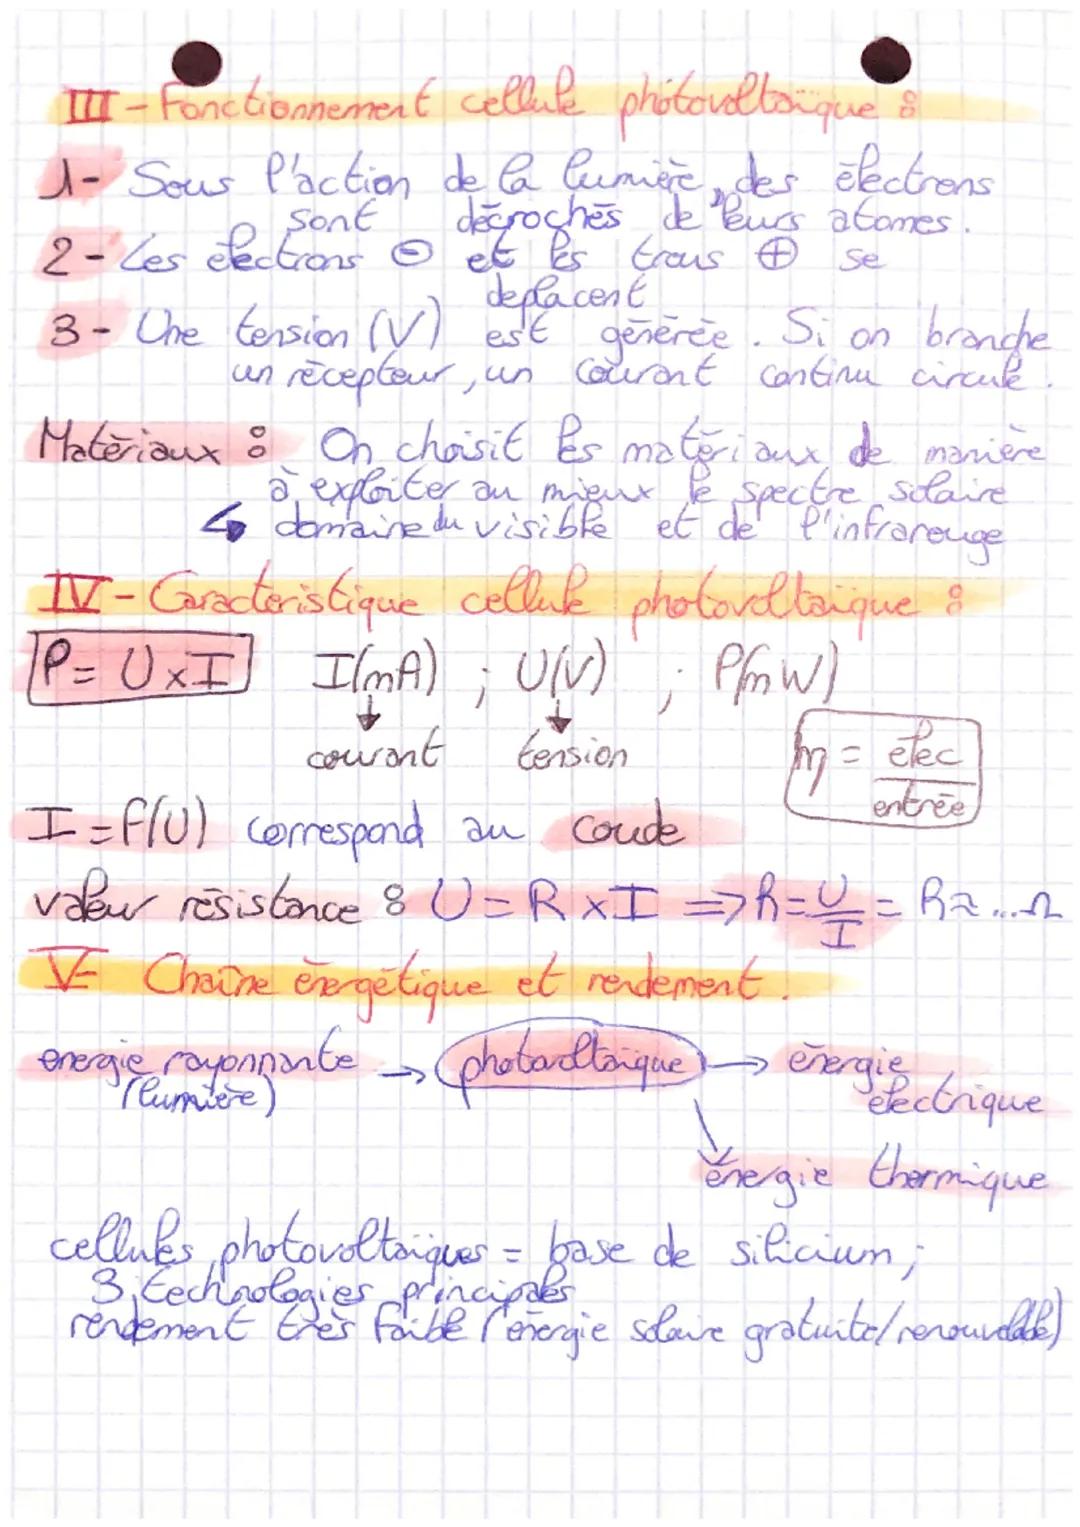 III - Fonctionnement cellule photovoltaïque :
1- Sous l'action de la lumière, des électrons
sont décrochés de leurs atomes.
2- Les électrons ⊖ et les trous ⊕ se
deplacent
3- Une tension (V) est générée. Si on branche
un récepteur, un courant continu circule.
Matériaux : On choisit les matériaux de manière
à exploiter au mieux le spectre solaire
↳ domaine du visible et de l'infrarouge
IV - Caracteristique cellule photovoltaïque :
P = U x I I(mA) ; U(V) ; P(mW)
courant tension
η = élec / entrée
I = f(U) correspond au coude
valeur résistance : U = R x I => R = U/I = R ≈ ...Ω
V- Chaîne énergétique et rendement.
energie rayonnante → photovoltaïque → énergie
(lumière) électrique
énergie thermique
cellules photovoltaïques = base de silicium ;
3 technologies principales
rendement très faible (énergie solaire gratuite/renouvelable)